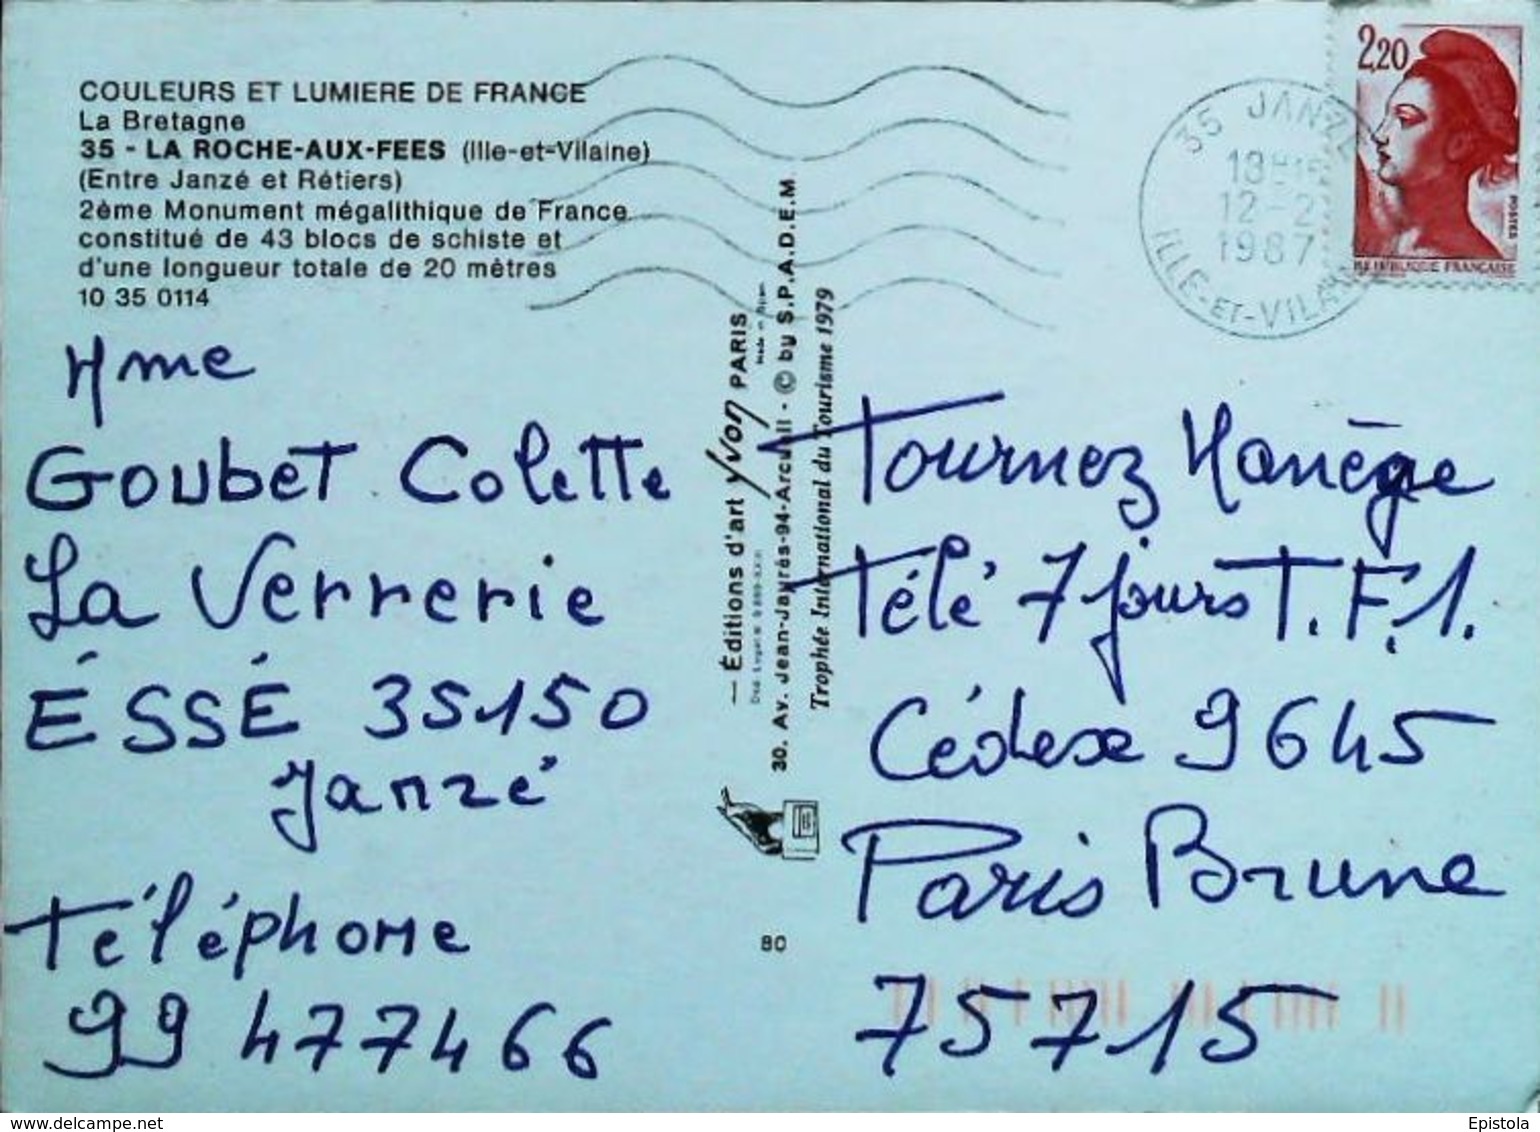 COULEURS ET LUMIERE DE FRANCE
La Bretagne
35 - LA ROCHE-AUX-FEES (Ille-et-Vilaine)
(Entre Janzé et Rétiers)
2ème Monument mégalithique de France
constitué de 43 blocs de schiste et
d'une longueur totale de 20 mètres
10 35 0114
Mme
Goubet Colette
La Verrerie
ÉSSÉ 35150
Janzé
Téléphone
99 477466
— Éditions d'art Yvon PARIS
30. Av. Jean-Jaurès-94-Arcueil - © by S.P.A.D.E.M.
Trophée International du Tourisme 1979
80
35 JANZE
12-2
1987
ILLE-ET-VILAINE
2,20
POSTES
REPUBLIQUE FRANÇAISE
Tournez Manège
Télé 7 jours T.F.1.
Cédexe 9645
Paris Brune
75715
delcampe.net
Epistola